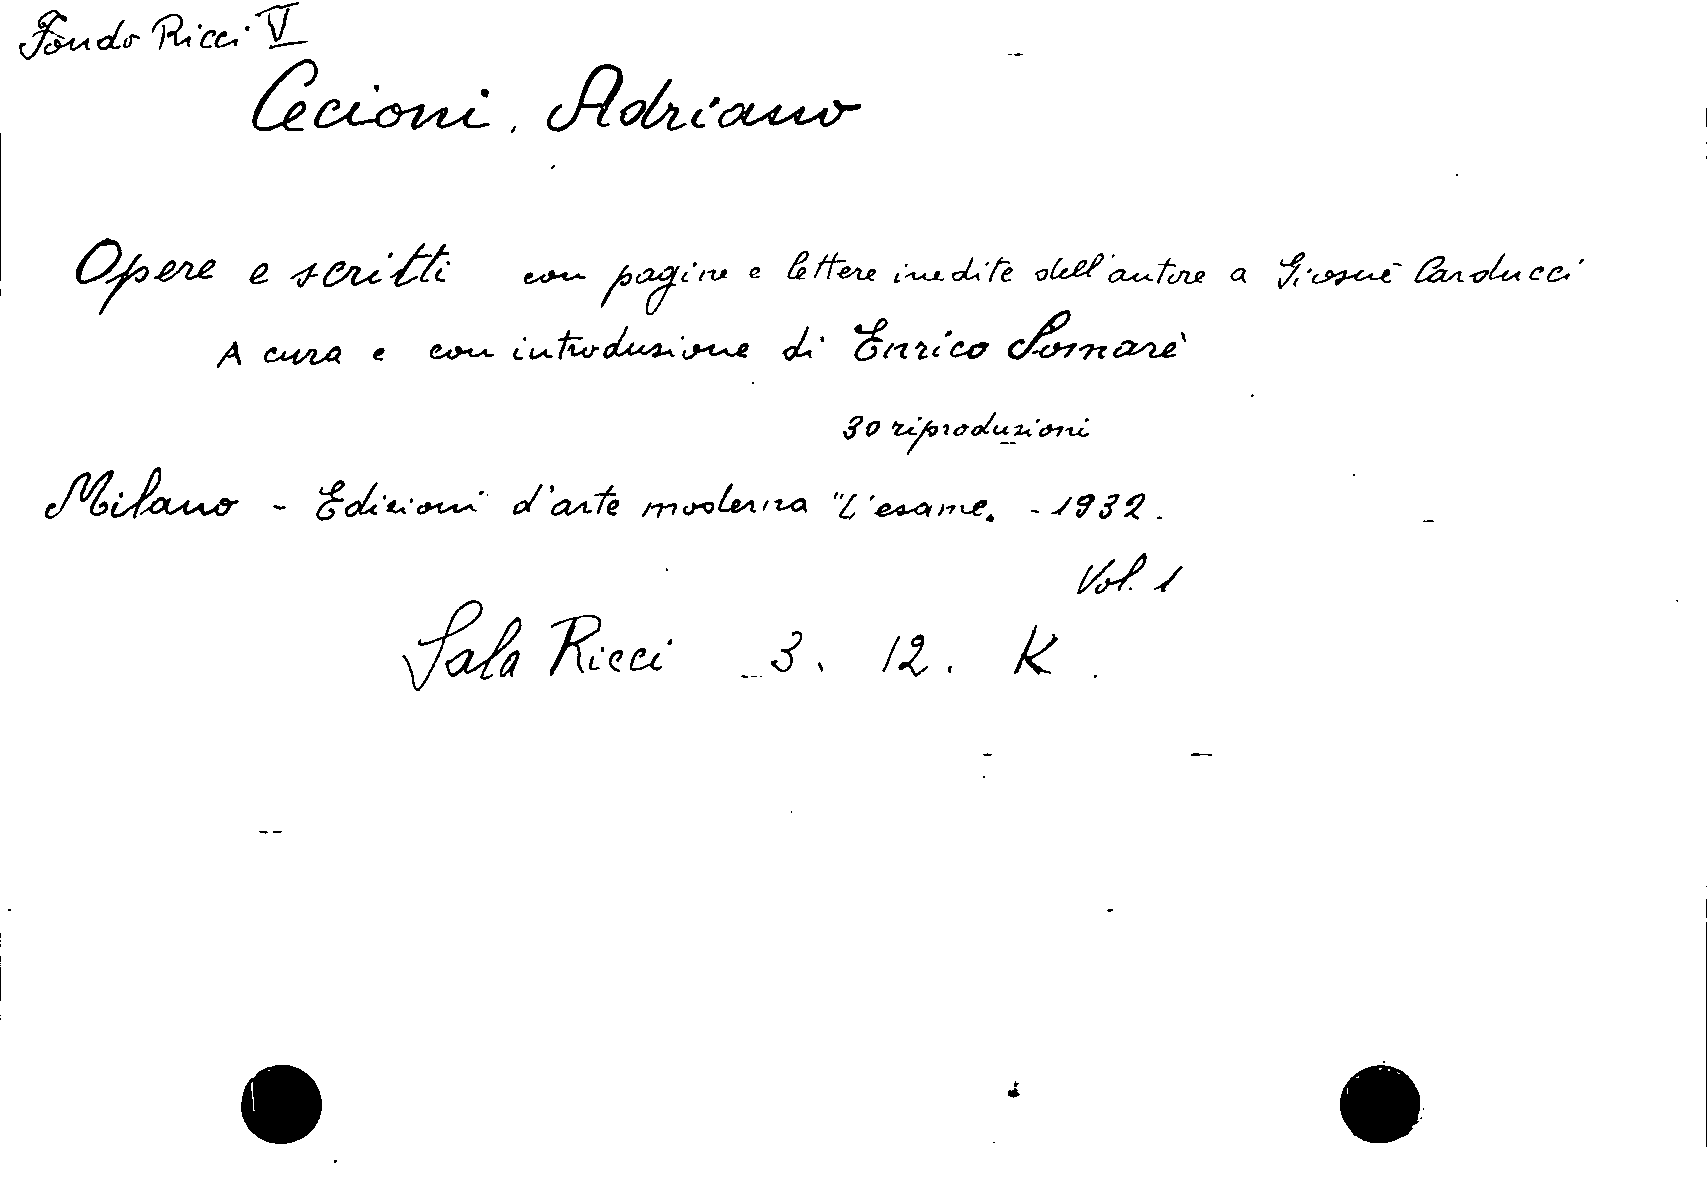 Fondo Ricci V
Cecioni, Adriano
Opere e scritti con pagine e lettere inedite dell'autore a Giosuè Carducci
A cura e con introduzione di Enrico Somarè
30 riproduzioni
Milano - Edizioni d'arte moderna "L'esame„ - 1932.
Vol. 1
Sala Ricci 3. 12. K.